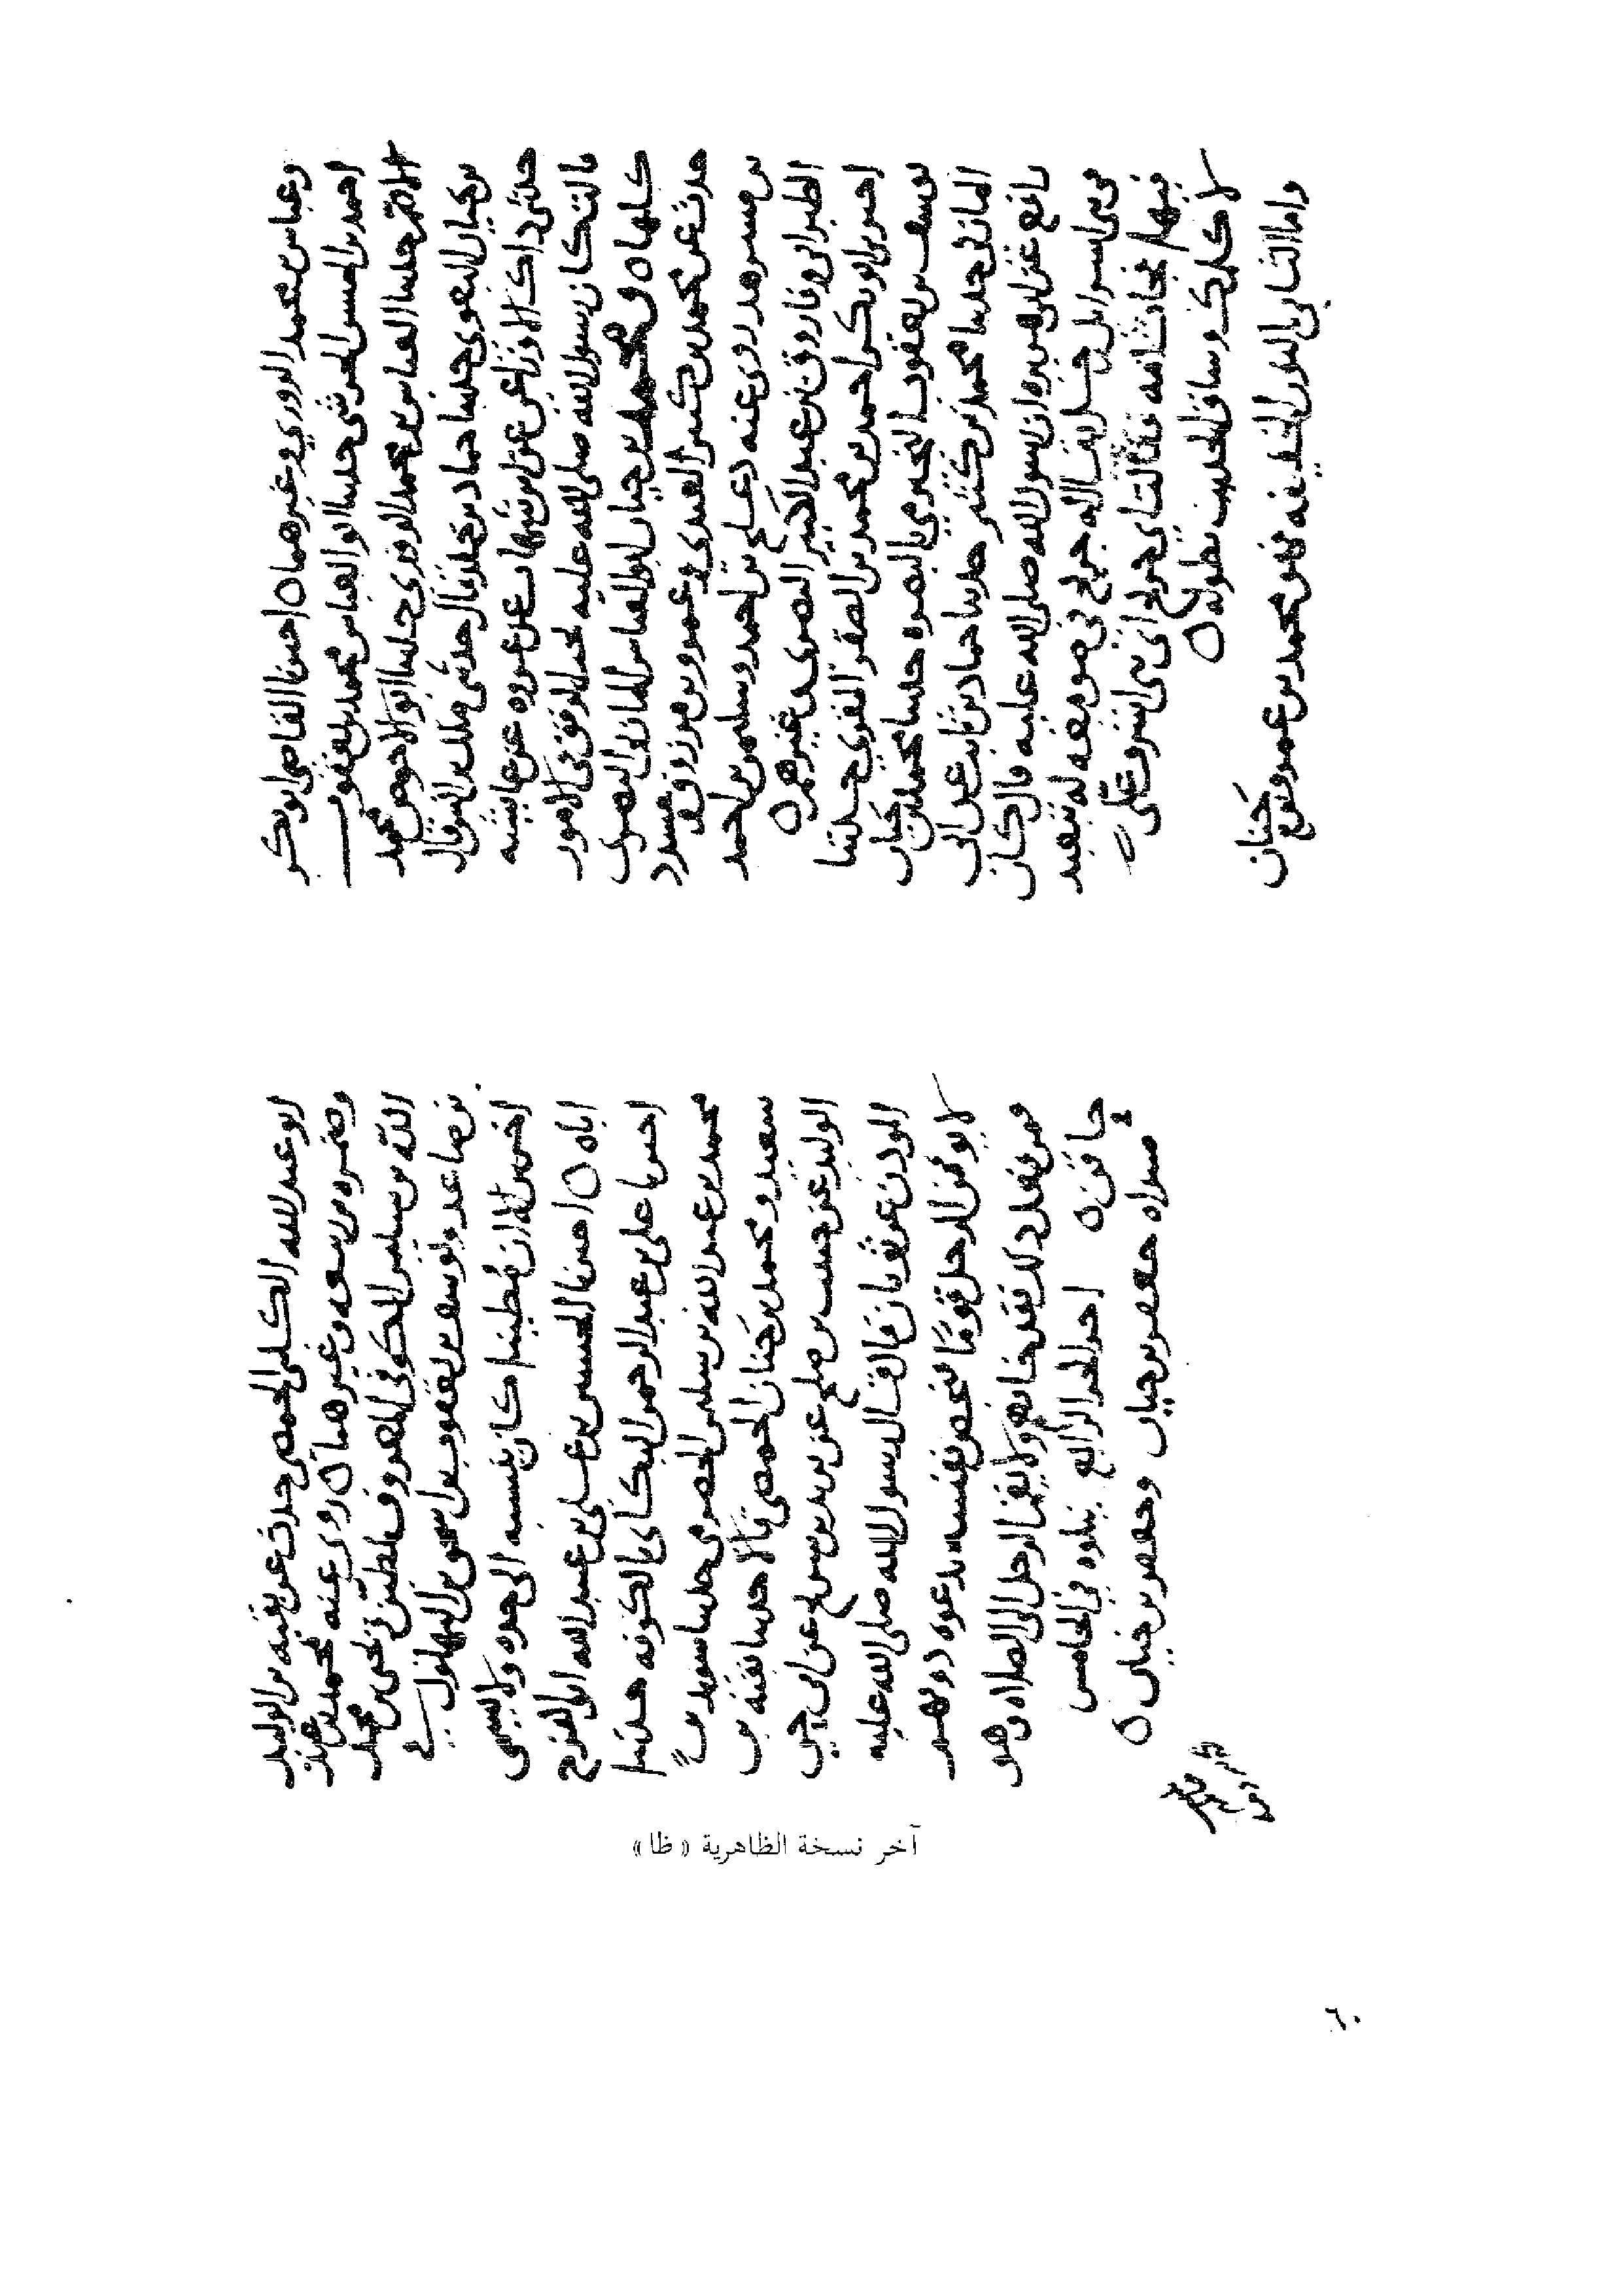 وعباس بن محمد الدوري وغيرهما ٥ اخبرنا القاضي ابو بكر
احمد بن الحسن الحرشي حدثنا ابو العباس محمد بن يعقوب
الاصم حدثنا العباس بن محمد الدوري حدثنا ابو الاحوص محمد
بن حيان البغوي حدثنا حماد بن خلد قال حدثني ملك بن انس قال
حدثني ذاك الاوزاعي عن ابن شهاب عن عروه عن عايشه
قالت كان رسول الله صلى الله عليه يحب الرفق في الامور
كلها ٥ ومحمد بن حيان ابو العباس المازني البصري
حدث عن محمد بن كثير العبدي وعمرو بن مرزوق ومسدد
بن مسرهد روى عنه دعلج بن احمد وسليمن بن احمد
الطبراني وفاروق بن عبد الكبير البصري وغيرهم ٥
اخبرني ابو بكر احمد بن محمد بن الصقر المقري حدثنا
يوسف بن يعقوب النجيرمي بالبصره حدثنا محمد بن حيان
المازني حدثنا محمد بن كثير حدثنا حماد بن ثابت عن ابي
رافع عن ابي هريره ان رسول الله صلى الله عليه قال كان
في بني اسرايل رجل يقال له جريج في صومعه له يتعبد
فيها فجات امه فقالت اي جريج اي بني اشرف علي
لاكلمك وساق الحديث بطوله ٥
واما الثاني بالنون الخفيفه فهو محمد بن عمرو بن حنان
ابو عبد الله الكلبي الحمصي حدث عن بقيه بن الوليد
وضمره بن ربيعه وغيرهما ٥ روى عنه محمد بن عبد
الله بن سليمن الكوفي المعروف بمطين ويحيى بن محمد
بن صاعد ويوسف بن يعقوب بن اسحق بن البهلول
اخرين الا ان مطينا كان ينسبه الى جده ولا يسمي
اباه ٥ اخبرنا الحسين بن علي بن عبيد الله ابو الفرج
اخبرنا علي بن عبد الرحمن البكاي بالكوفه حدثنا
محمد بن عبد الله بن سليمن الحضرمي حدثنا سويد بن
سعيد ومحمد بن حنان الحمصي قالا حدثنا بقيه بن
الوليد عن حبيب بن صلح عن يزيد بن شريح عن ابي حي
الموذن عن ثوبان قال قال رسول الله صلى الله عليه
لا يومن الرجل قوما فيخص نفسه بدعوه دونهم
فمن فعل ذلك فقد خانهم ولا يقم الرجل الى الصلاه وهو
حاقن ٥ اخر الجزء الرابع يتلوه في الخامس
مبداه حفص بن حيان وحفص بن حنان ٥
آخر نسخة الظاهرية « ظا »
٦٠